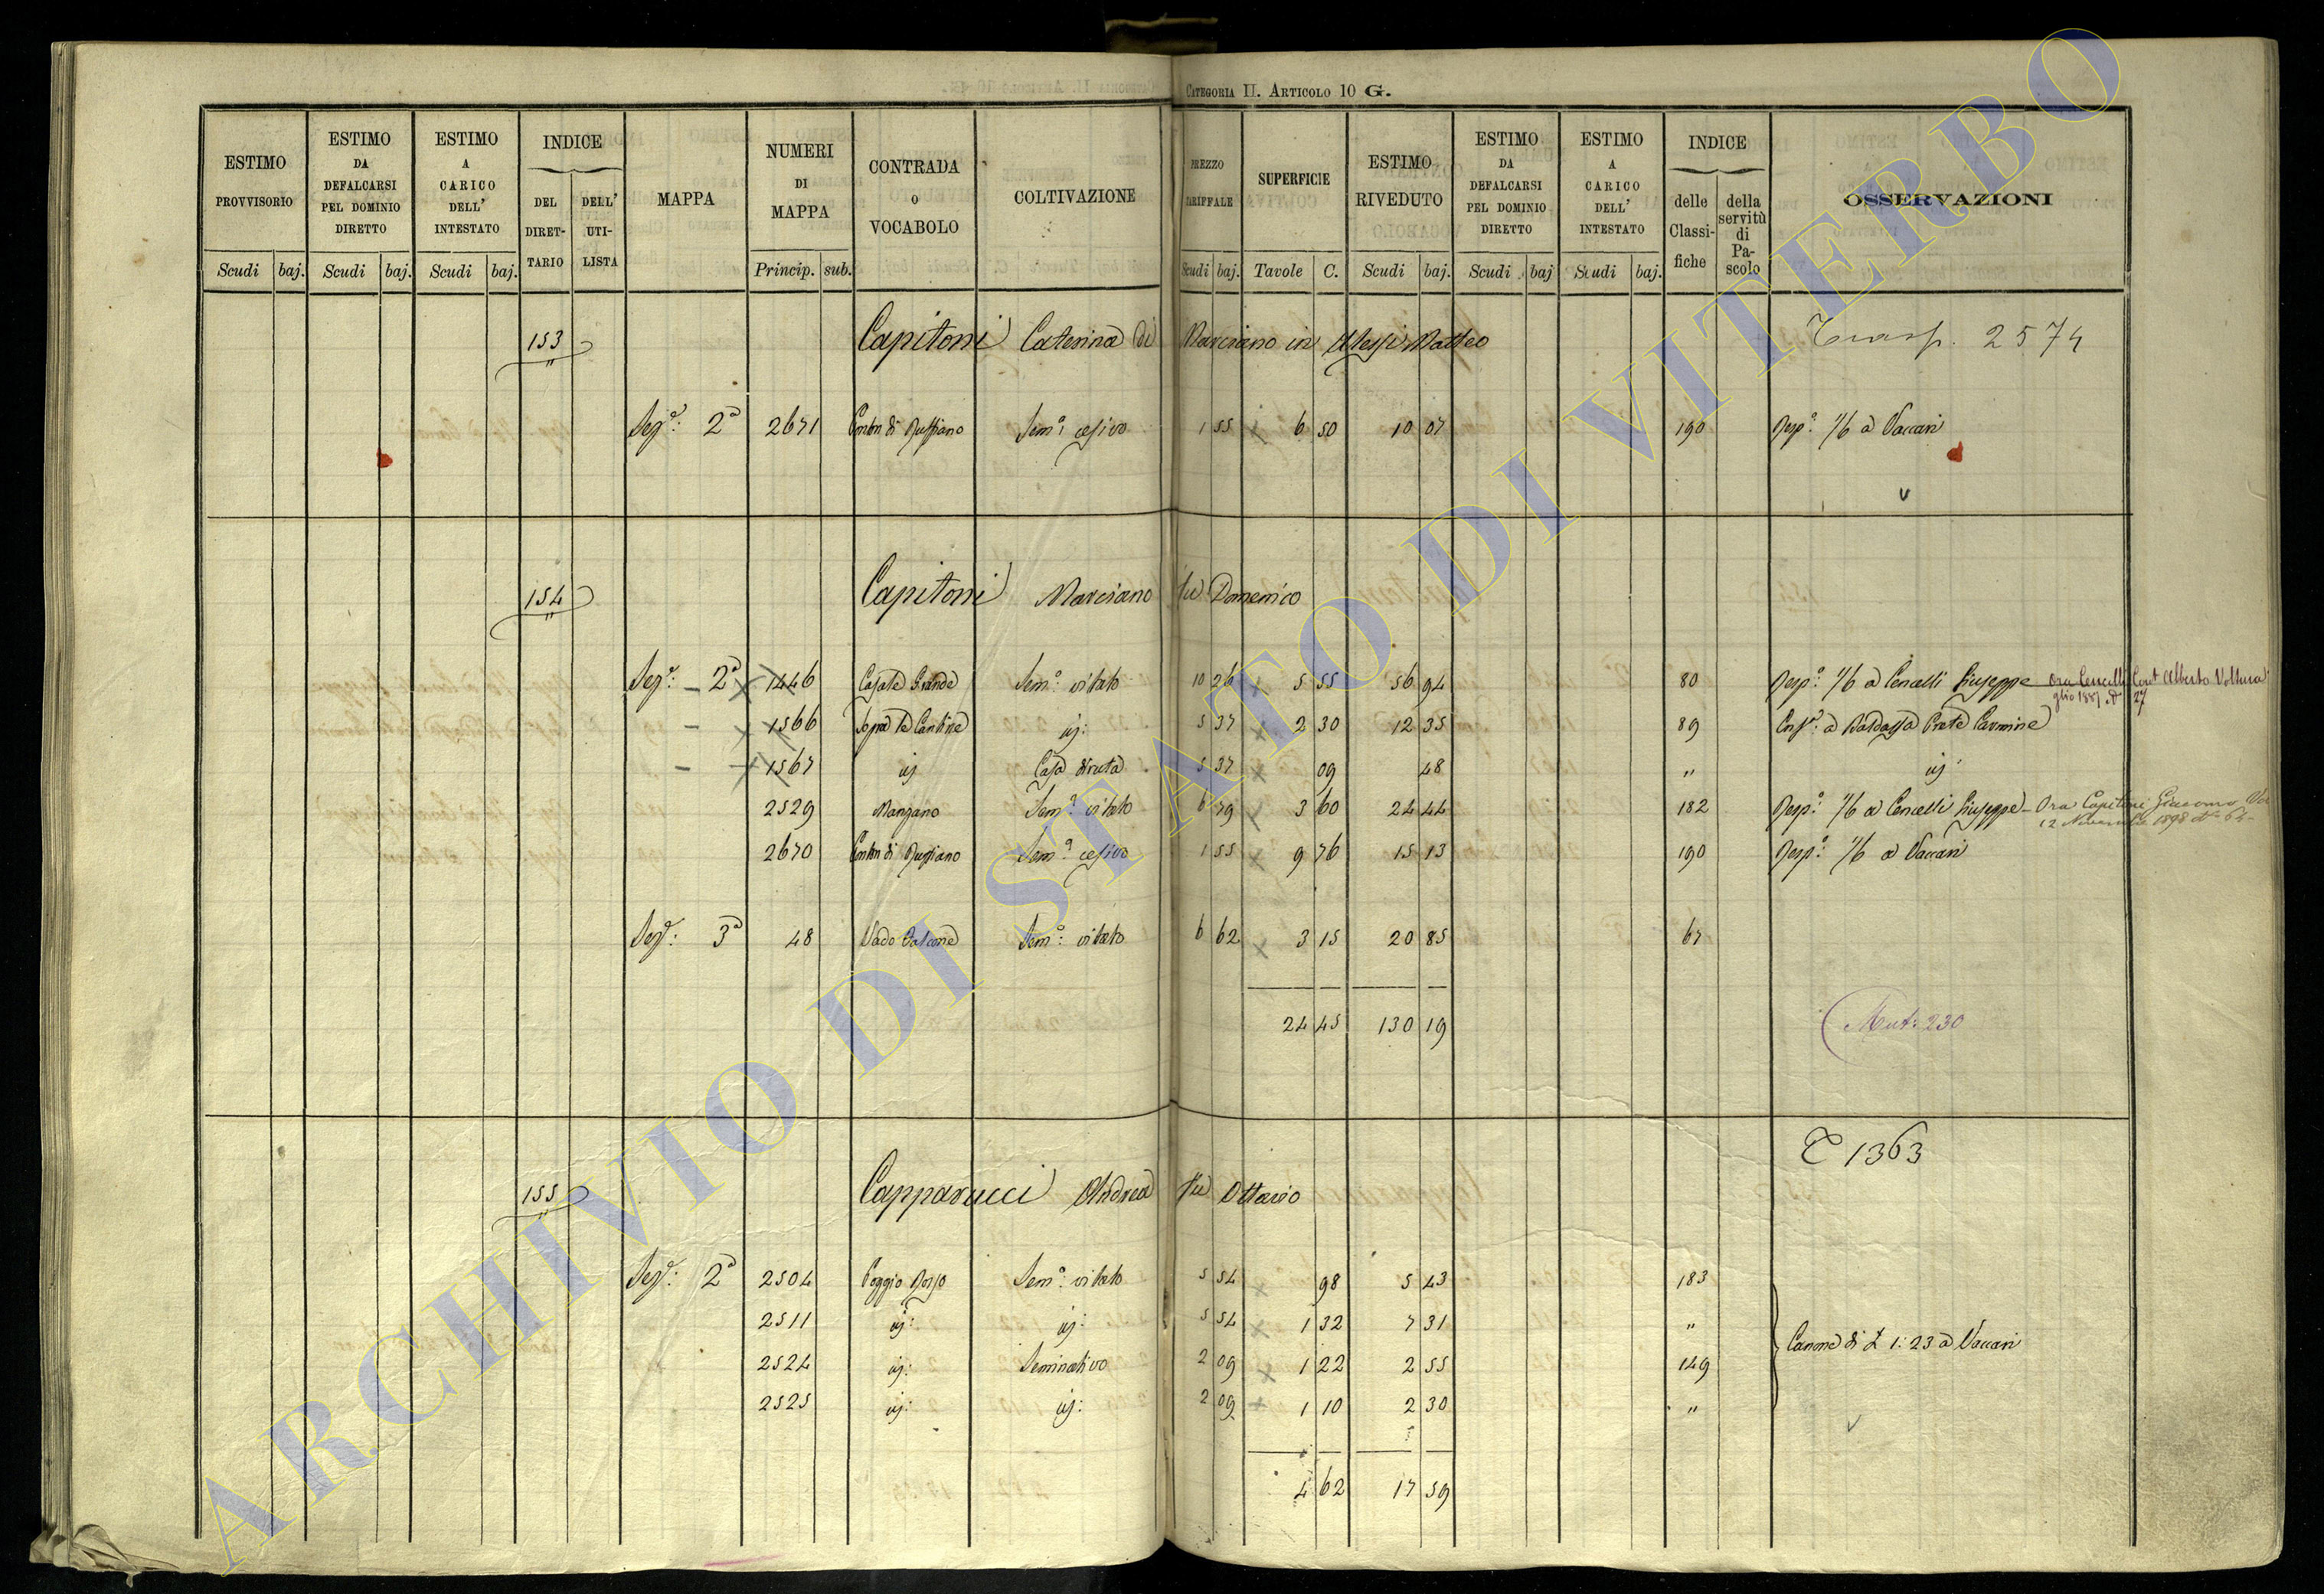 CATEGORIA II. ARTICOLO 10 G.
ESTIMO PROVVISORIO Scudi baj.
ESTIMO DA DEFALCARSI PEL DOMINIO DIRETTO Scudi baj.
ESTIMO A CARICO DELL' INTESTATO Scudi baj.
INDICE DEL DIRET-TARIO DELL' UTI-LISTA
MAPPA
NUMERI DI MAPPA Princip. sub.
CONTRADA O VOCABOLO
COLTIVAZIONE
PREZZO TARIFFALE Scudi baj.
SUPERFICIE Tavole C.
ESTIMO RIVEDUTO Scudi baj.
ESTIMO DA DEFALCARSI PEL DOMINIO DIRETTO Scudi baj
ESTIMO A CARICO DELL' INTESTATO Scudi baj.
INDICE delle Classi-fiche della servitù di Pa-scolo
OSSERVAZIONI
153 Capitoni Caterina di Marciano in Alessi Matteo Trasp. 2574
Sezᵉ: 2ª 2671 Semº: cesivo 1 55 6 50 10 07 190 Respª: 1/6 a Vaccari
v
154 Capitoni Marciano fu Domenico
Sezᵉ: 2ª 1446 Casale Grande Semº: vitato 10 26 5 55 56 94 80 Respª: 1/6 a Cencelli Giuseppe ora Cencelli Cont Alberto Voltura
glio 1887 Nº 27
1566 Sopra le Cantine id: 5 37 2 30 12 35 89 a Baldassa Prete Carmine
1567 id Casa diruta 5 37 09 48 " id
2529 Manzano Semº: vitato 6 79 3 60 24 44 182 Respª: 1/6 a Cencelli Giuseppe - Ora Capitoni Giacomo
12 Novembre 1898 Nº
2670 Semº: cesivo 1 55 9 76 15 13 190 Respª: 1/6 a Vaccari
Sezᵉ: 3ª 48 Vado Falcone Semº: vitato 6 62 3 15 20 85 67
24 45 130 19 Mut: 230
T 1363
155 Capparucci Andrea fu Ottavio
Sezᵉ: 2ª 2504 Poggio Rosso Semº: vitato 5 54 98 5 43 183
2511 id: id: 5 54 1 32 7 31 "
Canone di £ 1:23 a Vaccari
2524 id: Seminativo 2 09 1 22 2 55 149
2525 id: id: 2 09 1 10 2 30 "
v
4 62 17 59
ARCHIVIO DI STATO DI VITERBO